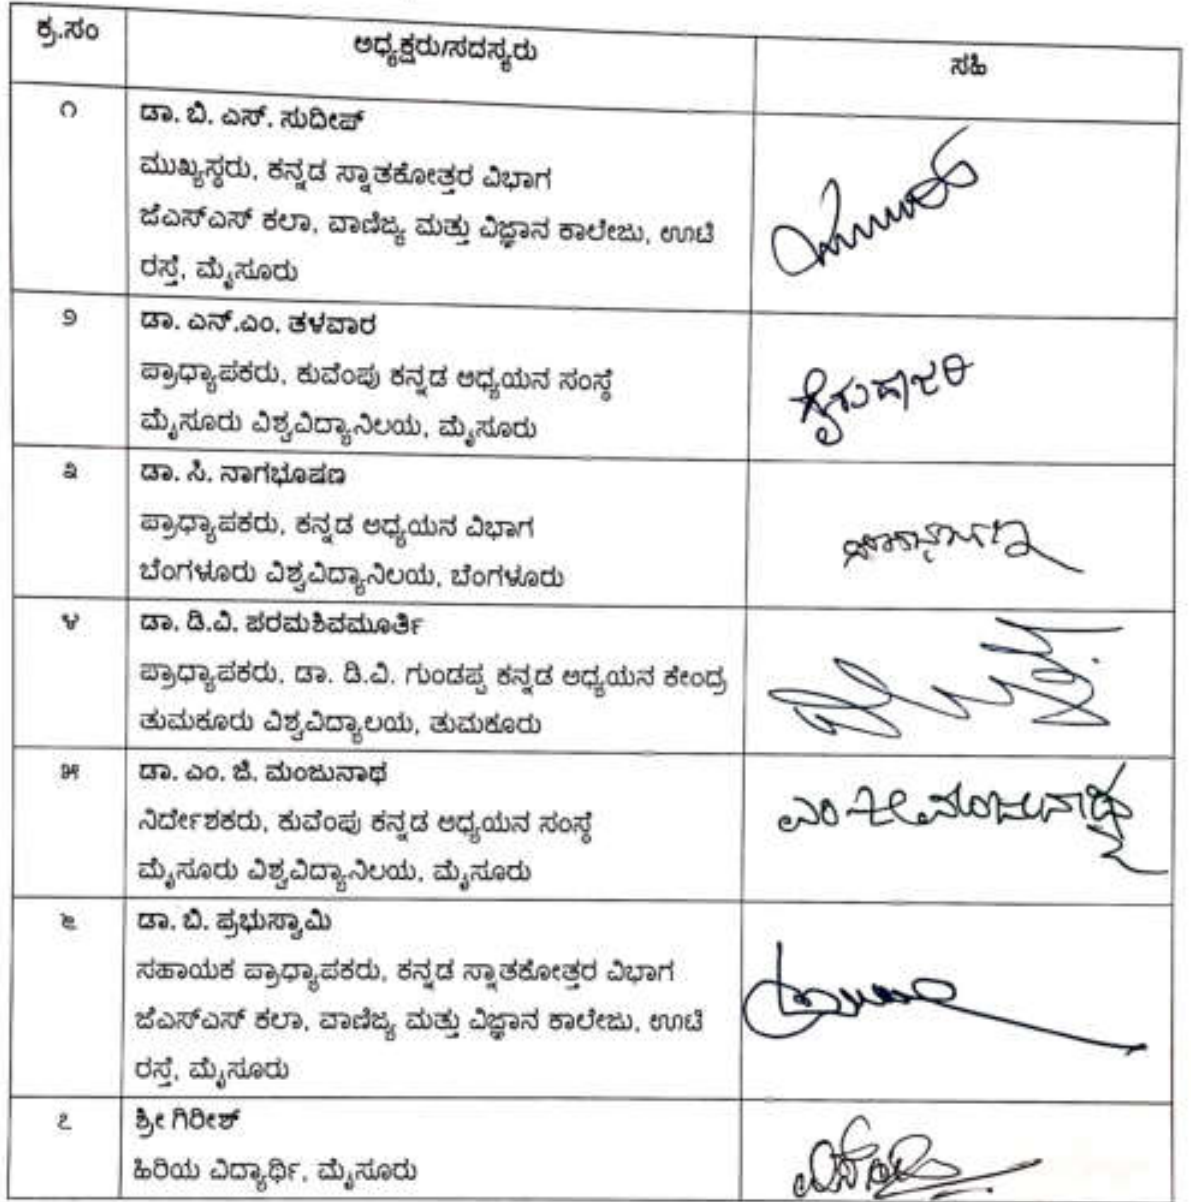 ಕ್ರ.ಸಂ ಅಧ್ಯಕ್ಷರು/ಸದಸ್ಯರು ಸಹಿ
೧ ಡಾ. ಬಿ. ಎಸ್. ಸುದೀಪ್
ಮುಖ್ಯಸ್ಥರು, ಕನ್ನಡ ಸ್ನಾತಕೋತ್ತರ ವಿಭಾಗ
ಜೆಎಸ್ಎಸ್ ಕಲಾ, ವಾಣಿಜ್ಯ ಮತ್ತು ವಿಜ್ಞಾನ ಕಾಲೇಜು, ಊಟಿ
ರಸ್ತೆ, ಮೈಸೂರು
೨ ಡಾ. ಎನ್.ಎಂ. ತಳವಾರ
ಪ್ರಾಧ್ಯಾಪಕರು, ಕುವೆಂಪು ಕನ್ನಡ ಅಧ್ಯಯನ ಸಂಸ್ಥೆ
ಮೈಸೂರು ವಿಶ್ವವಿದ್ಯಾನಿಲಯ, ಮೈಸೂರು
೩ ಡಾ. ಸಿ. ನಾಗಭೂಷಣ
ಪ್ರಾಧ್ಯಾಪಕರು, ಕನ್ನಡ ಅಧ್ಯಯನ ವಿಭಾಗ
ಬೆಂಗಳೂರು ವಿಶ್ವವಿದ್ಯಾನಿಲಯ, ಬೆಂಗಳೂರು
೪ ಡಾ. ಡಿ.ವಿ. ಪರಮಶಿವಮೂರ್ತಿ
ಪ್ರಾಧ್ಯಾಪಕರು, ಡಾ. ಡಿ.ವಿ. ಗುಂಡಪ್ಪ ಕನ್ನಡ ಅಧ್ಯಯನ ಕೇಂದ್ರ
ತುಮಕೂರು ವಿಶ್ವವಿದ್ಯಾಲಯ, ತುಮಕೂರು
೫ ಡಾ. ಎಂ. ಜಿ. ಮಂಜುನಾಥ ಎಂ ಜಿ ಮಂಜುನಾಥ
ನಿರ್ದೇಶಕರು, ಕುವೆಂಪು ಕನ್ನಡ ಅಧ್ಯಯನ ಸಂಸ್ಥೆ
ಮೈಸೂರು ವಿಶ್ವವಿದ್ಯಾನಿಲಯ, ಮೈಸೂರು
೬ ಡಾ. ಬಿ. ಪ್ರಭುಸ್ವಾಮಿ
ಸಹಾಯಕ ಪ್ರಾಧ್ಯಾಪಕರು, ಕನ್ನಡ ಸ್ನಾತಕೋತ್ತರ ವಿಭಾಗ
ಜೆಎಸ್ಎಸ್ ಕಲಾ, ವಾಣಿಜ್ಯ ಮತ್ತು ವಿಜ್ಞಾನ ಕಾಲೇಜು, ಊಟಿ
ರಸ್ತೆ, ಮೈಸೂರು
೭ ಶ್ರೀ ಗಿರೀಶ್
ಹಿರಿಯ ವಿದ್ಯಾರ್ಥಿ, ಮೈಸೂರು